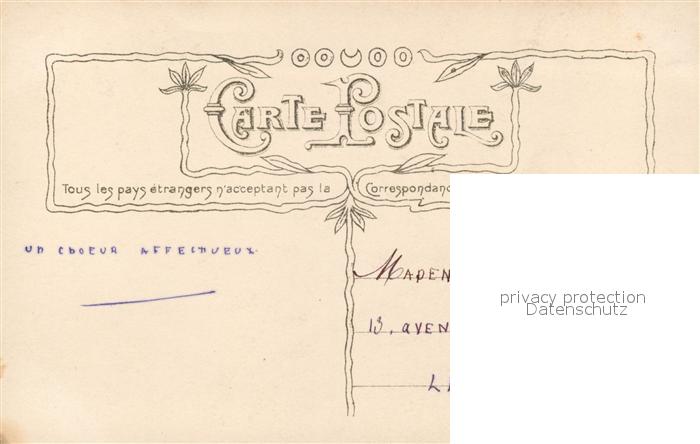 CARTE POSTALE
Tous les pays étrangers n'acceptant pas la Correspondanc
UN CHOEUR AFFECTUEUX.
MADEM
13, AVEN
privacy protection
Datenschutz